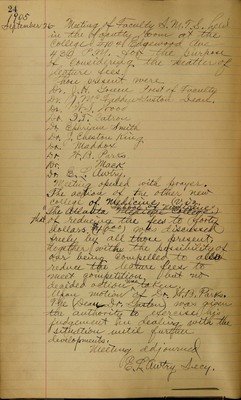 24
1905
September 26. Meeting of Faculty S.M.C. held
in the Faculty room at the
College Edgewood Ave
P.M. for the purpose
of considering the matter of
lecture fees.
Those present were
Dr. J. H. Pres't of Faculty
Dr. J. McFadden Gaston Dean.
Dr. W. S.
Dr. T. S.
Dr. Ephraim
Dr. Cheston King
Dr. Maddox
Dr. H. B. Parks
Dr. Mack
Dr. C. Awtry.
Meeting opened with prayer.
The action of the other new
college of Medicine, (viz.
The Atlanta
of reducing the fee to forty
dollars ($40.00) was discussed
freely by all those present,
together with the possibility of
our being compelled to also
reduce the lecture fees to
meet competition, but no
decided action was taken.
Upon motion of Dr. H.B. Parks.
The Dean Dr. Gaston, was given
the authority to exercise his
judgement in dealing with the
situation until further
developments.
Meeting adjourned
Awtry, Secy.